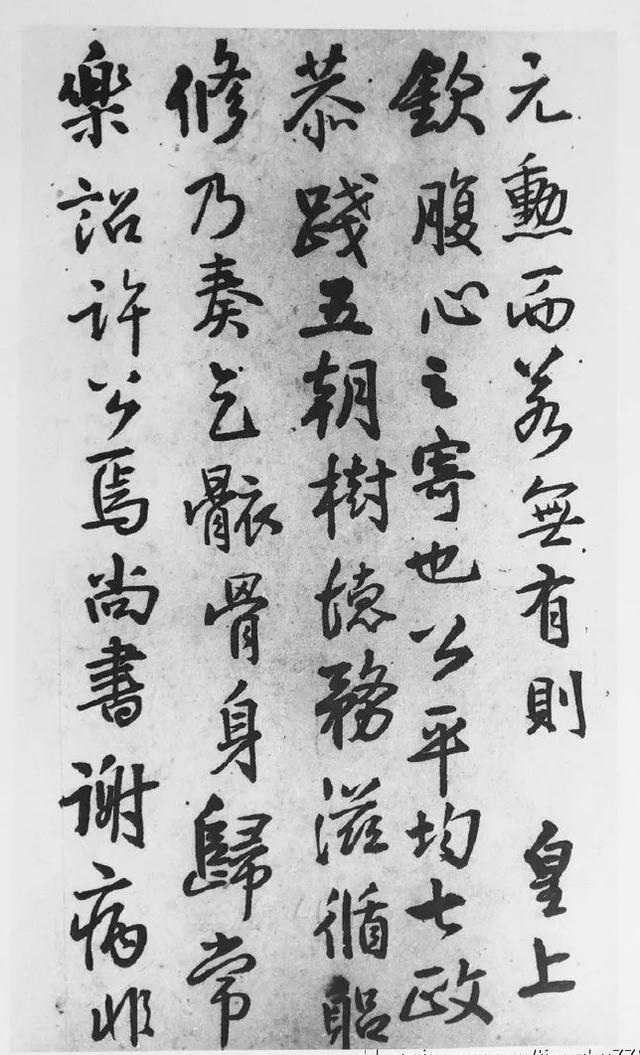 元勳而若無有則 皇上
欽腹心之寄也公平均七政
恭踐五朝樹德務滋循
修乃奏乞骸骨身歸常
樂詔許公焉尚書謝病非